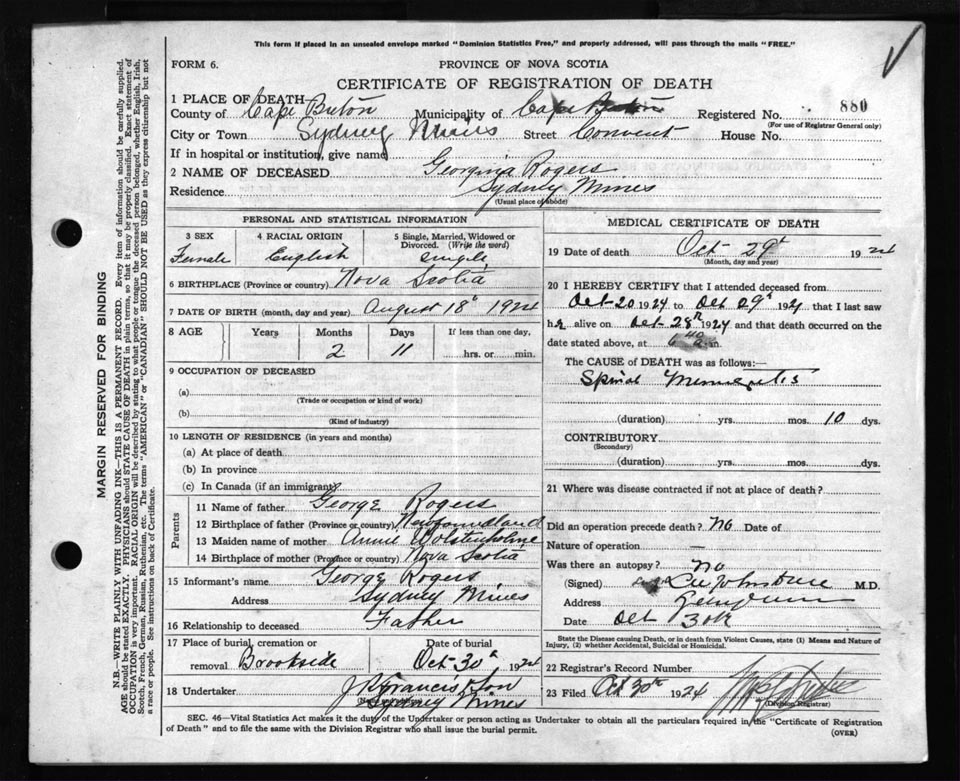 This form if placed in an unsealed envelope marked "Dominion Statistics Free," and properly addressed, will pass through the mails "FREE."
FORM 6.
PROVINCE OF NOVA SCOTIA
CERTIFICATE OF REGISTRATION OF DEATH
1 PLACE OF DEATH
County of Cape Breton Municipality of Cape Breton Registered No. 880
(For use of Registrar General only)
City or Town Sydney Mines Street Convent House No.
If in hospital or institution, give name
2 NAME OF DECEASED Georgina Rogers
Residence Sydney Mines
(Usual place of abode)
PERSONAL AND STATISTICAL INFORMATION
3 SEX 4 RACIAL ORIGIN 5 Single, Married, Widowed or Divorced. (Write the word)
Female English single
6 BIRTHPLACE (Province or country) Nova Scotia
7 DATE OF BIRTH (month, day and year) August 18th 1924
8 AGE Years Months Days If less than one day,
2 11 hrs. or min.
9 OCCUPATION OF DECEASED
(a)
(Trade or occupation or kind of work)
(b)
(Kind of industry)
10 LENGTH OF RESIDENCE (in years and months)
(a) At place of death
(b) In province
(c) In Canada (if an immigrant)
Parents
11 Name of father George Rogers
12 Birthplace of father (Province or country) Newfoundland
13 Maiden name of mother Annie Wolstenholme
14 Birthplace of mother (Province or country) Nova Scotia
15 Informant's name George Rogers
Address Sydney Mines
16 Relationship to deceased Father
17 Place of burial, cremation or removal Brookside Date of burial Oct 30th, 1924
18 Undertaker J R Francis & Son
Sydney Mines
MEDICAL CERTIFICATE OF DEATH
19 Date of death Oct 29th 1924
(Month, day and year)
20 I HEREBY CERTIFY that I attended deceased from
Oct 20 1924 to Oct 29th 1924 that I last saw
h alive on Oct 28th 1924 and that death occurred on the
date stated above, at 6 40 a m.
The CAUSE of DEATH was as follows:—
Spinal Meningitis
(duration) yrs. mos. 10 dys.
CONTRIBUTORY
(Secondary)
(duration) yrs. mos. dys.
21 Where was disease contracted if not at place of death?
Did an operation precede death? No Date of
Nature of operation —
Was there an autopsy? No
(Signed) M.D.
Address
Date Oct 30th
State the Disease causing Death, or in death from Violent Causes, state (1) Means and Nature of Injury, (2) whether Accidental, Suicidal or Homicidal.
22 Registrar's Record Number
23 Filed Oct 30th 1924
(Division Registrar)
SEC. 46—Vital Statistics Act makes it the duty of the Undertaker or person acting as Undertaker to obtain all the particulars required in the "Certificate of Registration
of Death" and to file the same with the Division Registrar who shall issue the burial permit.
(OVER)
MARGIN RESERVED FOR BINDING
N.B.—WRITE PLAINLY WITH UNFADING INK—THIS IS A PERMANENT RECORD. Every item of information should be carefully supplied.
AGE should be stated EXACTLY. PHYSICIANS should STATE CAUSE OF DEATH in plain terms, so that it may be properly classified. Exact statement of
OCCUPATION is very important. RACIAL ORIGIN will be described by stating to what people or tongue the deceased person belonged, whether English, Irish,
Scotch, French, German, Russian, Ruthenian, etc. The terms "AMERICAN" or "CANADIAN" SHOULD NOT BE USED as they express citizenship but not
a race or people. See instructions on back of Certificate.